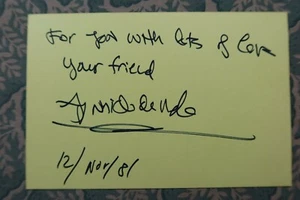 For you with lots of love
your friend
12/Nov/81